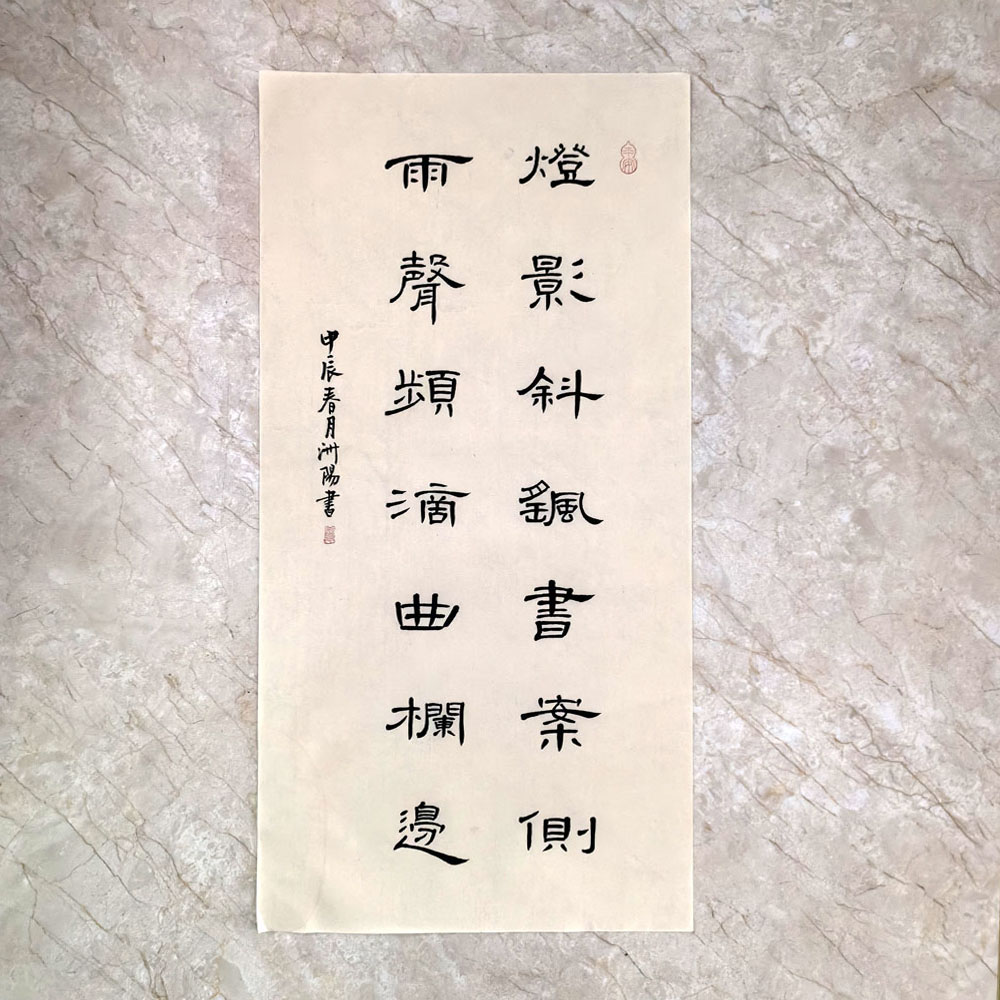 燈影斜颻書案側
雨聲頻滴曲欄邊
甲辰春月洲陽書